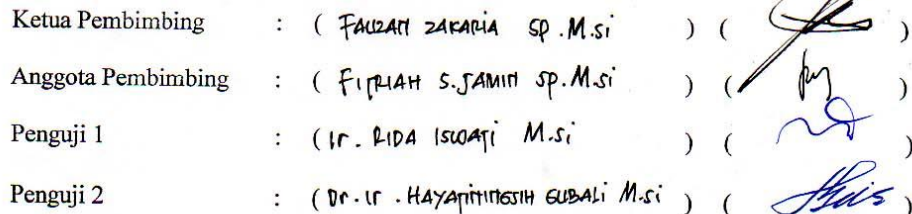 Ketua Pembimbing : ( FAUZAN ZAKARIA SP.M.Si ) ( )
Anggota Pembimbing : ( FITRIAH S.JAMIN SP.M.Si ) ( )
Penguji 1 : ( Ir. RIDA ISWATI M.Si ) ( )
Penguji 2 : ( Dr. Ir. HAYATININGSIH GUBALI M.Si ) ( )